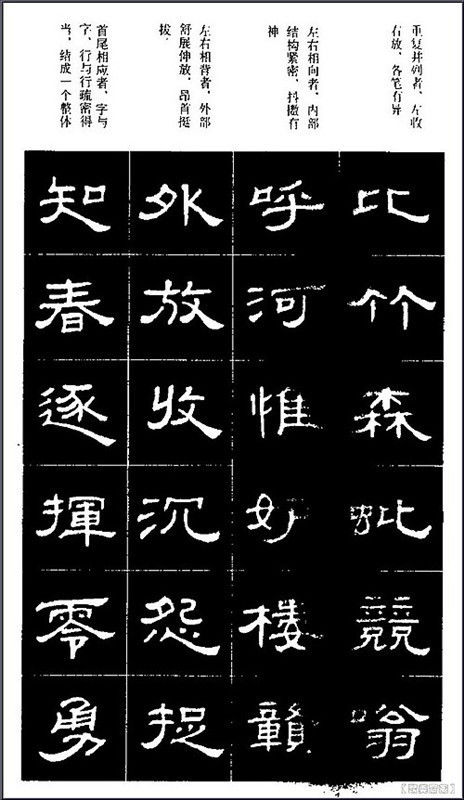 重复并列者、左收
右放、各笔有异
左右相向者、内部
结构紧密、抖擞有
神
左右相背者、外部
舒展伸放、昂首挺
拔
首尾相应者、字与
字、行与行疏密得
当、结成一个整体
比竹森競嗡
呼河惟樓贛
外放收沉怨捉
知春逐揮零勇